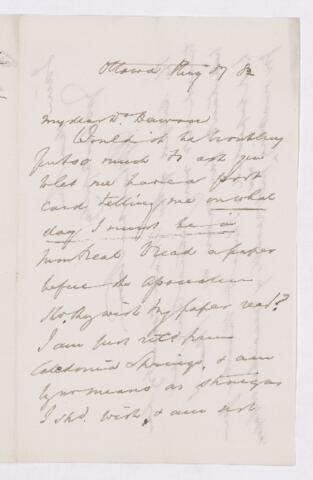 Ottawa Aug 17 82
My dear Dr Dawson
Would it be troubling
you too much to ask you
to let me have a post
card telling me on what
day I must be in
Montreal to read a paper
before the Association
sh. they wish my paper read?
I am just rett from
Caledonia Springs, & am
by no means as strong as
I shd. wish, & am not